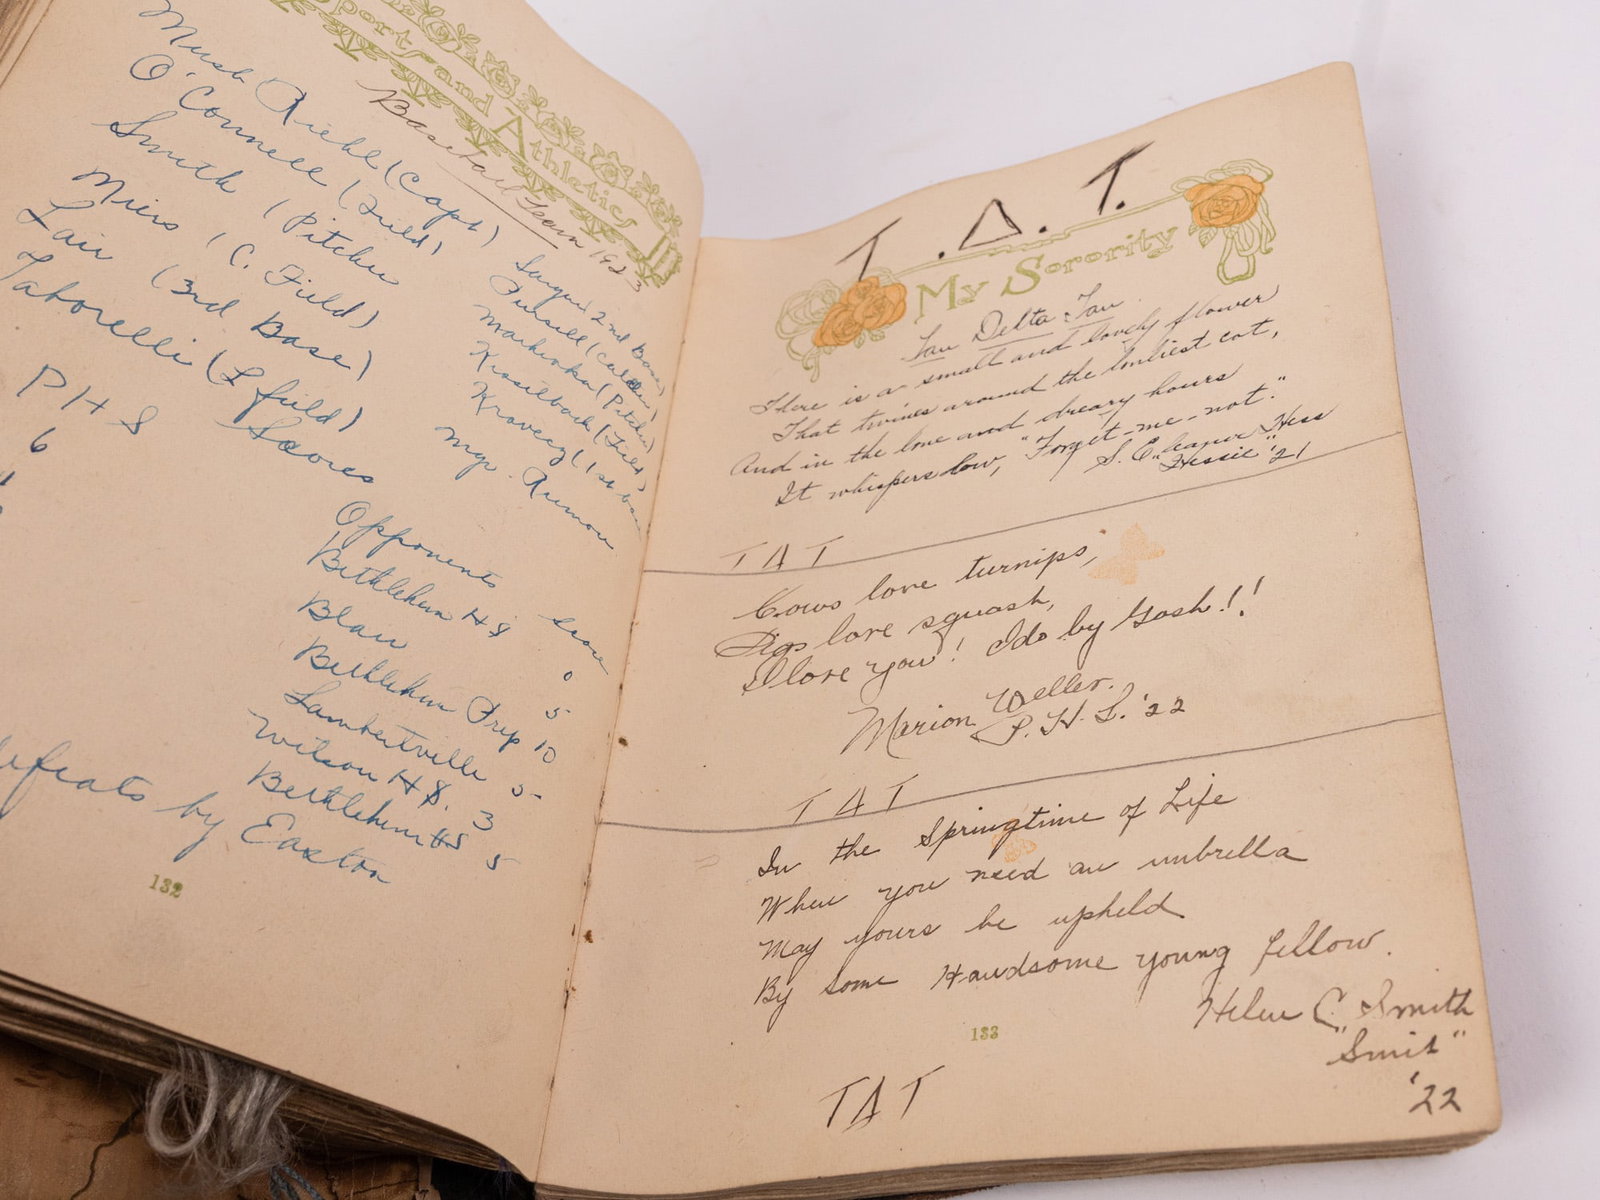 Sports and Athletics
Baseball Team 1923
Mush Riehl (Capt)
O'Connell (Field)
Smith (Pitcher
Miers (C. Field)
Lair (3rd Base)
Taborelli (L field)
2nd Base)
Pursell (
(Pitcher)
(Field)
(1st bas
Mgr.
P H S
Scores
6
Opponents score
Bethlehem HS 0
Blair 5
Bethlehem Prep 10
Lambertville 5
Wilson H S. 3
Bethlehem HS 5
by Easton
132
T. Δ. T.
My Sorority
Tau Delta Tau
There is a small and lovely flower
That twines around the lonliest cot,
And in the lone and dreary hours
It whispers low, "Forget-me-not."
S. Eleanor Hess
"Hessie" '21
T Δ T
Cows love turnips,
Pigs love squash,
I love you! I do by Gosh!!
Marion Weller.
P. H. S. '22
T Δ T
In the Springtime of Life
When you need an umbrella
May yours be upheld
By some Handsome young fellow.
Helen C. Smith
"Smit"
'22
133
T Δ T